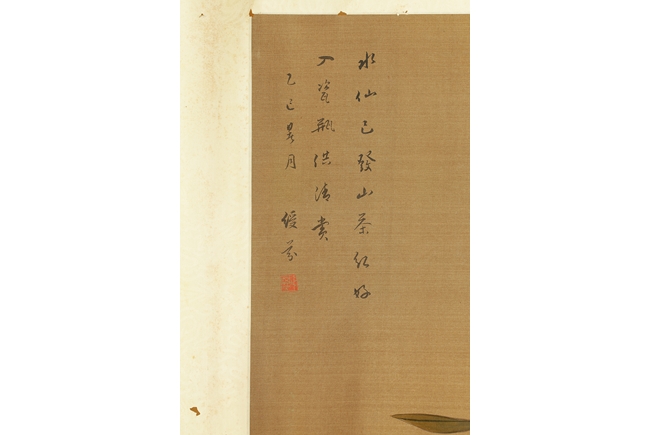 水仙已發山茶紅好
入瓷瓶供清賞
乙巳 月